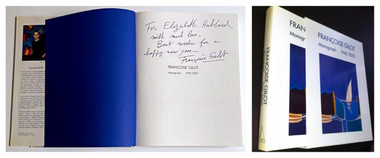 For Elizabeth Hubbard
with much love.
Best wishes for a
happy new year
Françoise Gilot
FRANÇOISE GILOT
Monograph 1940-2000
FRANÇOISE GILOT
FRAN
Monogr
FRANÇOISE GILOT
Monograph 1940-2000